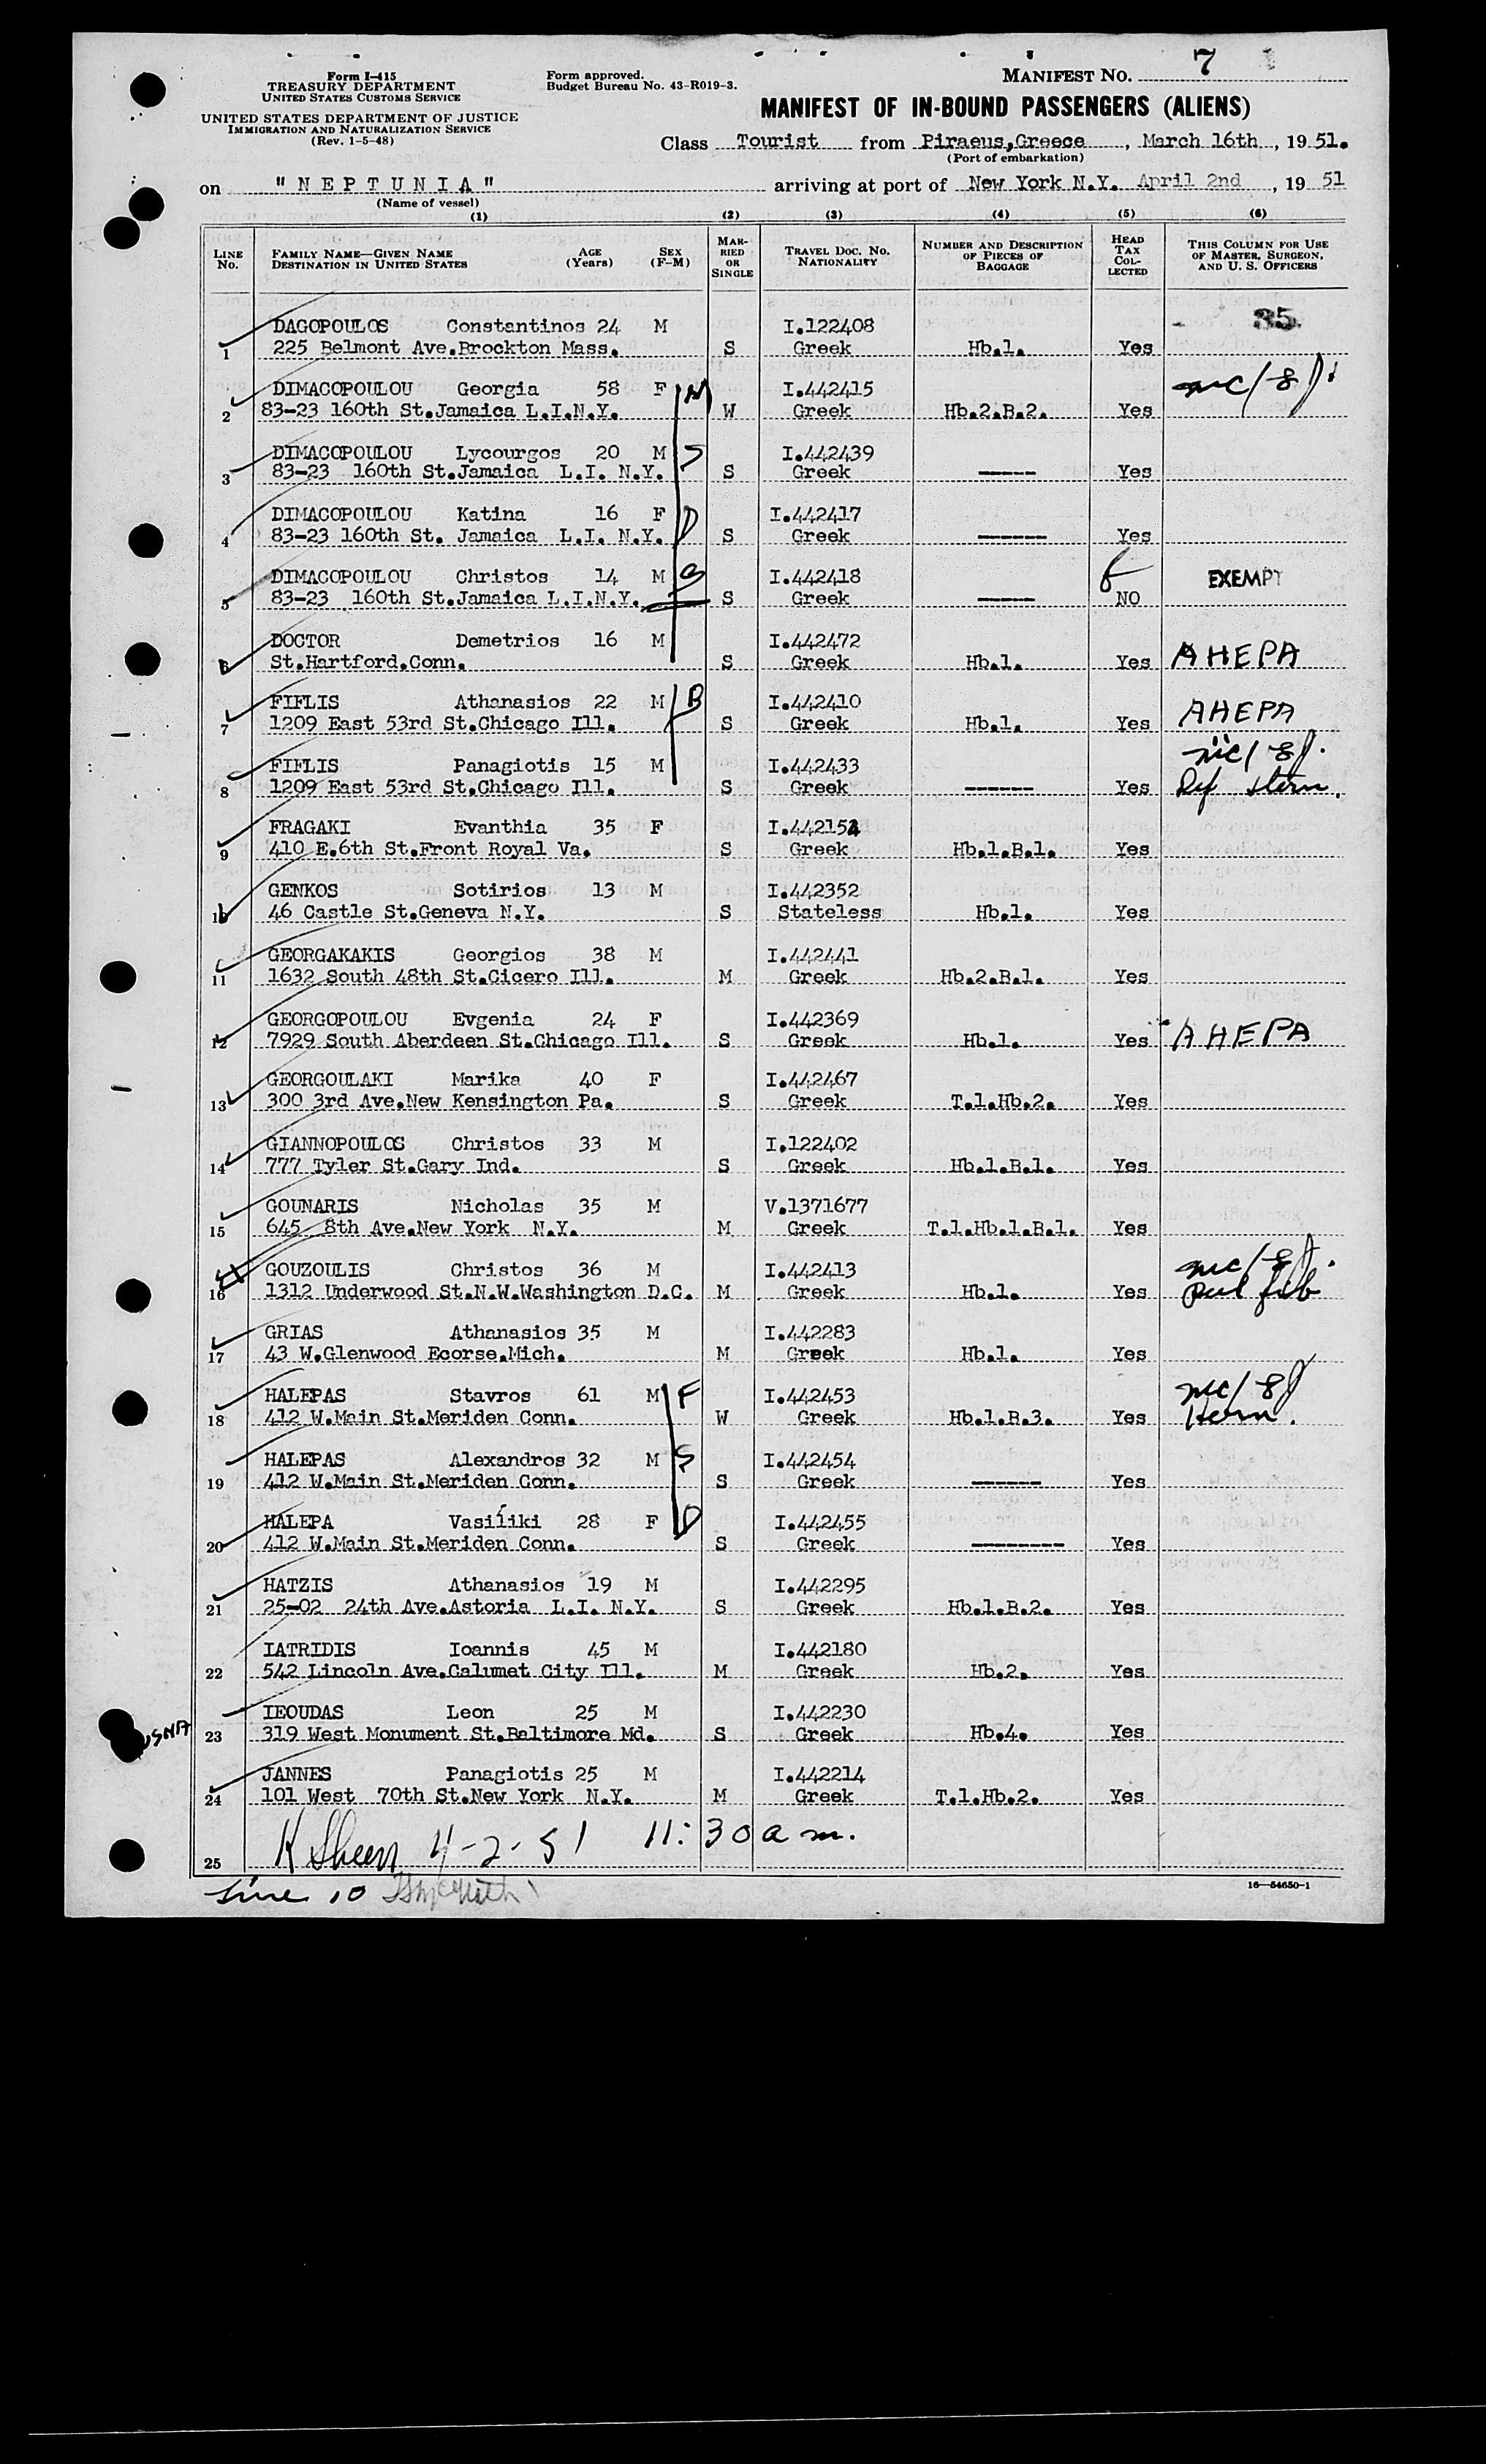 Form I-415
TREASURY DEPARTMENT
UNITED STATES CUSTOMS SERVICE
UNITED STATES DEPARTMENT OF JUSTICE
IMMIGRATION AND NATURALIZATION SERVICE
(Rev. 1-5-48)
Form approved.
Budget Bureau No. 43-R019-3.
MANIFEST NO. 7
MANIFEST OF IN-BOUND PASSENGERS (ALIENS)
Class Tourist from Piraeus,Greece, March 16th, 1951.
(Port of embarkation)
on "NEPTUNIA" arriving at port of New York N.Y. April 2nd, 1951
(Name of vessel)
(1) (2) (3) (4) (5) (6)
LINE No. FAMILY NAME—GIVEN NAME DESTINATION IN UNITED STATES AGE (Years) SEX (F-M) MARRIED OR SINGLE TRAVEL DOC. NO. NATIONALITY NUMBER AND DESCRIPTION OF PIECES OF BAGGAGE HEAD TAX COLLECTED THIS COLUMN FOR USE OF MASTER, SURGEON, AND U. S. OFFICERS
DAGOPOULOS Constantinos 24 M I.122408 35
1 225 Belmont Ave.Brockton Mass. S Greek Hb.1. Yes
DIMACOPOULOU Georgia 58 F M I.442415
2 83-23 160th St.Jamaica L.I.N.Y. W Greek Hb.2.B.2. Yes
DIMACOPOULOU Lycourgos 20 M S I.442439
3 83-23 160th St.Jamaica L.I. N.Y. S Greek ----- Yes
DIMACOPOULOU Katina 16 F D I.442417
4 83-23 160th St. Jamaica L.I. N.Y. S Greek ------ Yes
DIMACOPOULOU Christos 14 M S I.442418 EXEMPT
5 83-23 160th St.Jamaica L.I.N.Y. S Greek ----- NO
DOCTOR Demetrios 16 M I.442472
6 St.Hartford,Conn. S Greek Hb.1. Yes AHEPA
FIFLIS Athanasios 22 M B I.442410
7 1209 East 53rd St.Chicago Ill. S Greek Hb.1. Yes AHEPA
FIFLIS Panagiotis 15 M I.442433
8 1209 East 53rd St.Chicago Ill. S Greek ------ Yes
FRAGAKI Evanthia 35 F I.442152
9 410 E.6th St.Front Royal Va. S Greek Hb.1.B.1. Yes
GENKOS Sotirios 13 M I.442352
10 46 Castle St.Geneva N.Y. S Stateless Hb.1. Yes
GEORGAKAKIS Georgios 38 M I.442441
11 1632 South 48th St.Cicero Ill. M Greek Hb.2.B.1. Yes
GEORGOPOULOU Evgenia 24 F I.442369
12 7929 South Aberdeen St.Chicago Ill. S Greek Hb.1. Yes AHEPA
GEORGOULAKI Marika 40 F I.442467
13 300 3rd Ave.New Kensington Pa. S Greek T.1.Hb.2. Yes
GIANNOPOULOS Christos 33 M I.122402
14 777 Tyler St.Gary Ind. S Greek Hb.1.B.1. Yes
GOUNARIS Nicholas 35 M V.1371677
15 645 8th Ave.New York N.Y. M Greek T.1.Hb.1.B.1. Yes
GOUZOULIS Christos 36 M I.442413
16 1312 Underwood St.N.W.Washington D.C. M Greek Hb.1. Yes
GRIAS Athanasios 35 M I.442283
17 43 W.Glenwood Ecorse.Mich. M Greek Hb.1. Yes
HALEPAS Stavros 61 M F I.442453
18 412 W.Main St.Meriden Conn. W Greek Hb.1.B.3. Yes
HALEPAS Alexandros 32 M S I.442454
19 412 W.Main St.Meriden Conn. S Greek ------ Yes
HALEPA Vasiliki 28 F D I.442455
20 412 W.Main St.Meriden Conn. S Greek -------- Yes
HATZIS Athanasios 19 M I.442295
21 25-02 24th Ave.Astoria L.I. N.Y. S Greek Hb.1.B.2. Yes
IATRIDIS Ioannis 45 M I.442180
22 542 Lincoln Ave.Calumet City Ill. M Greek Hb.2. Yes
IEOUDAS Leon 25 M I.442230
USNA 23 319 West Monument St.Baltimore Md. S Greek Hb.4. Yes
JANNES Panagiotis 25 M I.442214
24 101 West 70th St.New York N.Y. M Greek T.1.Hb.2. Yes
25 K Sheen 4-2-51 11:30 a m.
Line 10
16—54650-1